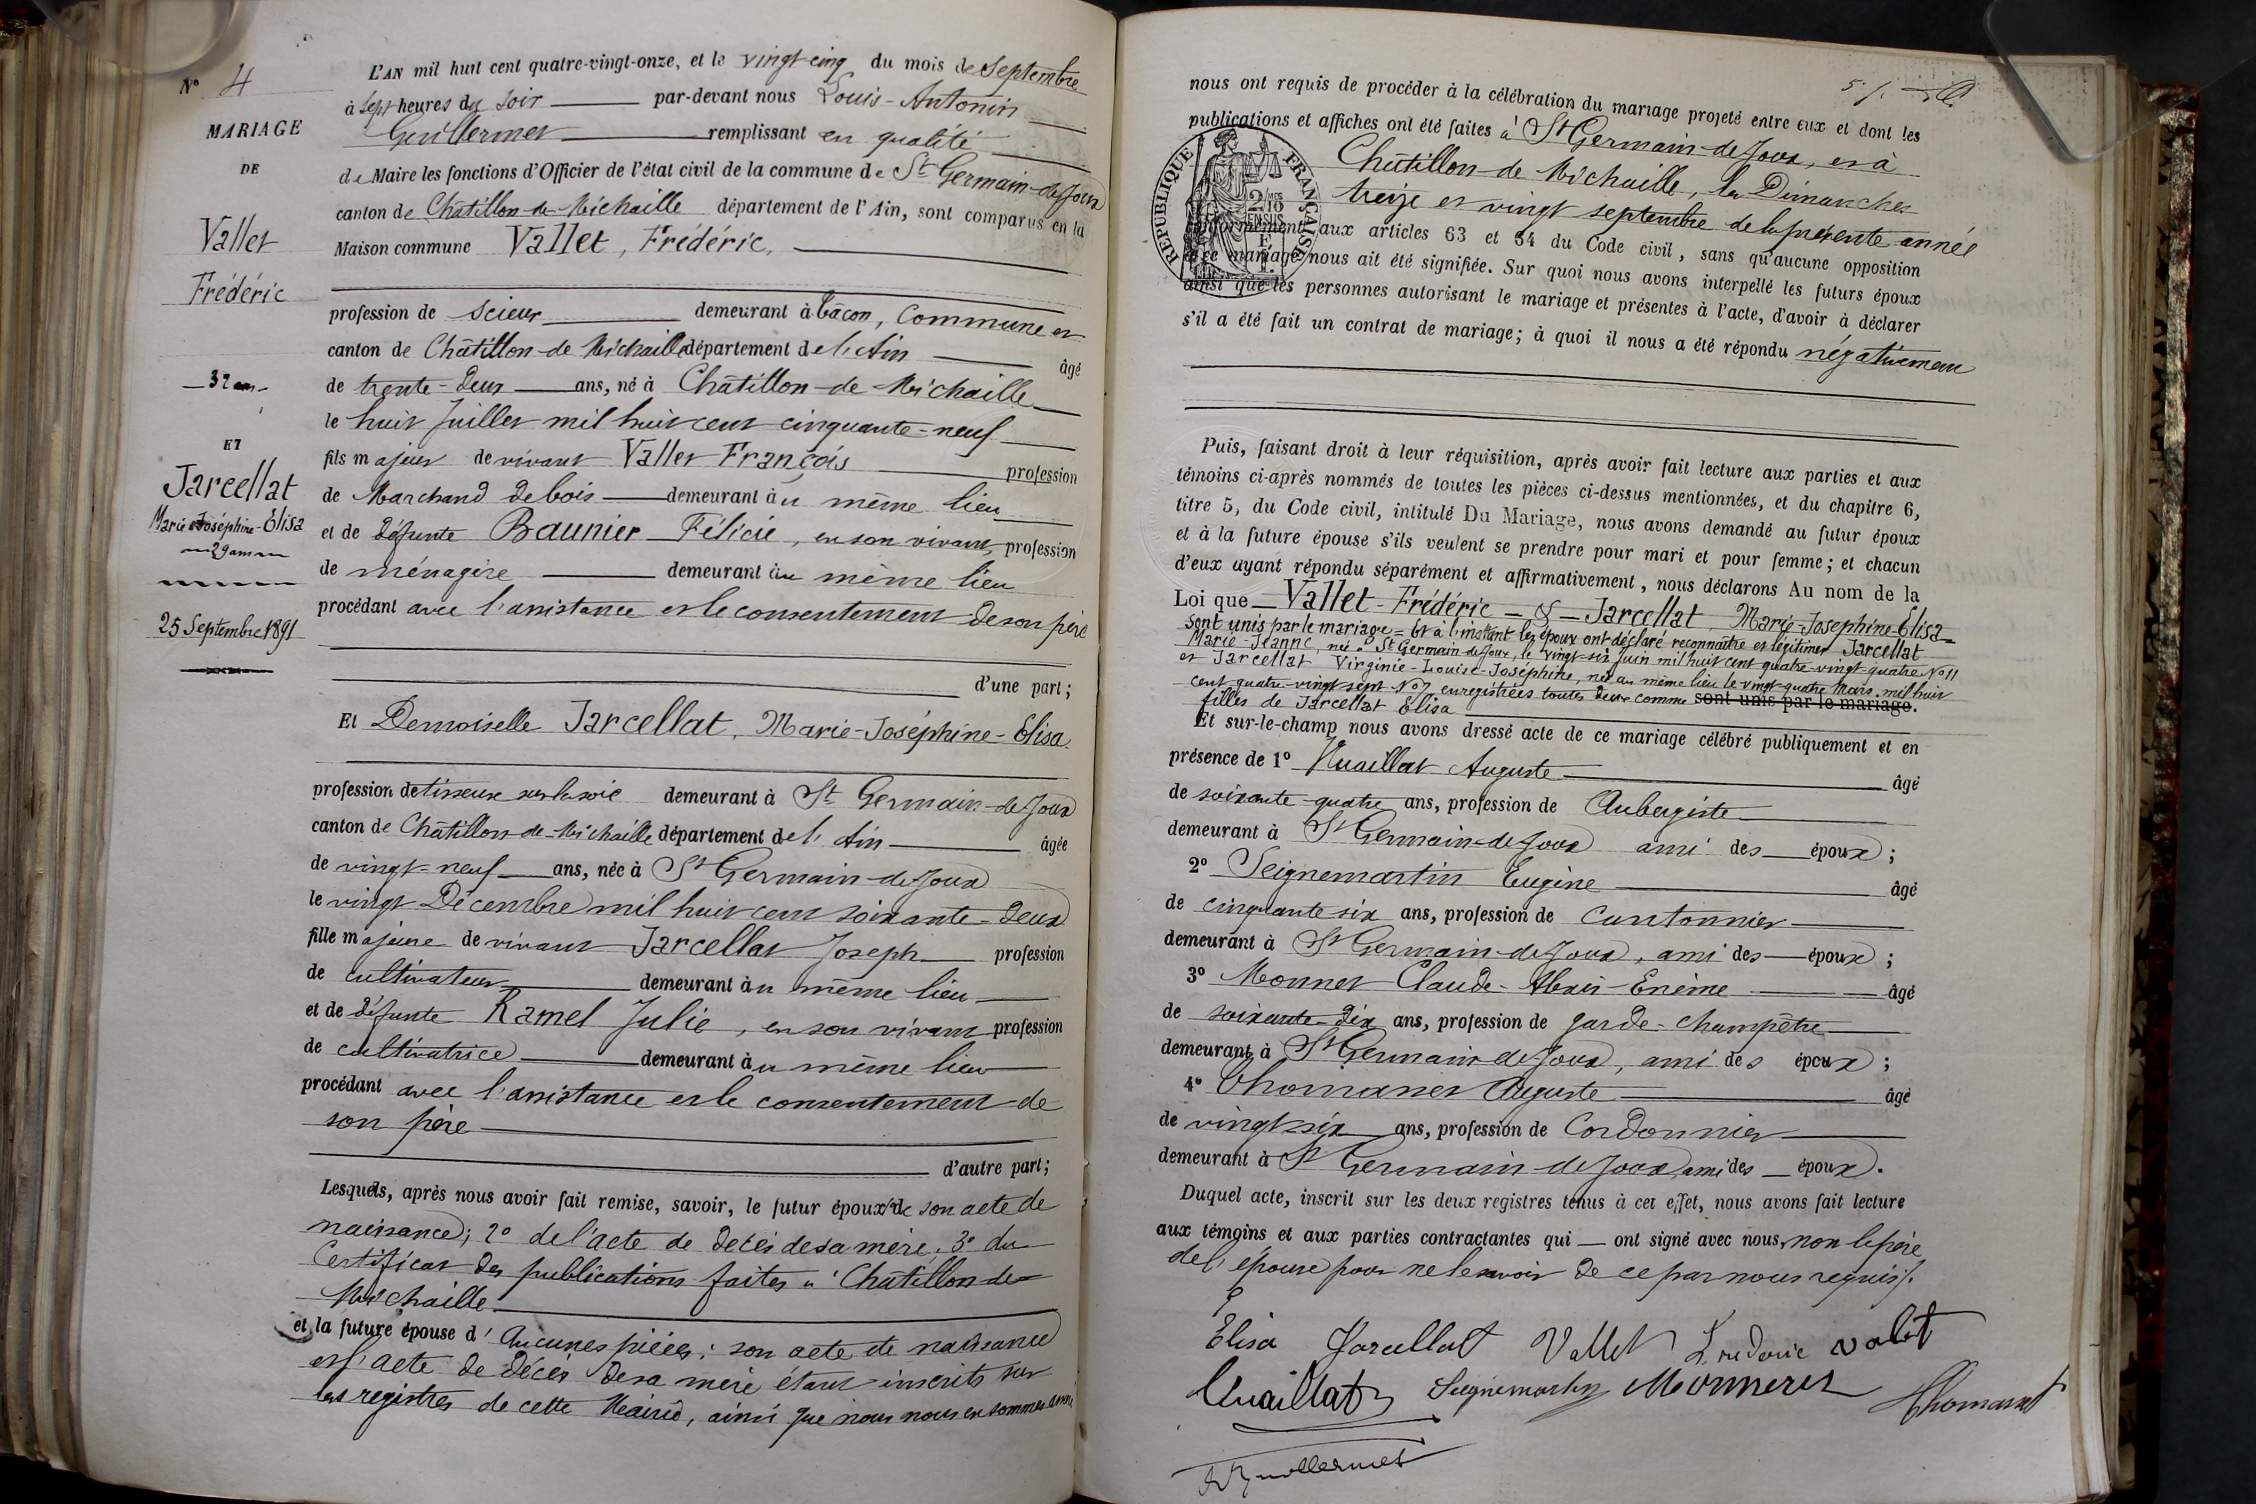 N° 4
MARIAGE
DE
Vallet
Frédéric
32 ans
ET
Jarcellat
Marie-Joséphine-Élisa
29 ans
25 Septembre 1891
L'AN mil huit cent quatre-vingt-onze, et le vingt-cinq du mois de Septembre
à sept heures du soir par-devant nous Louis-Antonin
Guillermet remplissant en qualité
de Maire les fonctions d'Officier de l'état civil de la commune de St Germain-de-Joux
canton de Châtillon-de-Michaille département de l'Ain, sont comparus en la
Maison commune Vallet, Frédéric,
profession de scieur demeurant à Tacon, Commune et
canton de Châtillon-de-Michaille département de l'Ain âgé
de trente-deux ans, né à Châtillon-de-Michaille
le huit Juillet mil huit cent cinquante-neuf
fils majeur de vivant Vallet François profession
de Marchand de bois demeurant au même lieu
et de défunte Baunier Félicie, en son vivant, profession
de ménagère demeurant au même lieu
procédant avec l'assistance et le consentement de son père
d'une part;
Et Demoiselle Jarcellat, Marie-Joséphine-Élisa
profession de tisseuse sur la soie demeurant à St Germain-de-Joux
canton de Châtillon-de-Michaille département de l'Ain âgée
de vingt-neuf ans, née à St Germain-de-Joux
le vingt Décembre mil huit cent soixante-deux
fille majeure de vivant Jarcellat Joseph profession
de cultivateur demeurant au même lieu
et de défunte Ramel Julie, en son vivant profession
de cultivatrice demeurant au même lieu
procédant avec l'assistance et le consentement de
son père
d'autre part;
Lesquels, après nous avoir fait remise, savoir, le futur époux 1° de son acte de
naissance; 2° de l'acte de décès de sa mère; 3° du
Certificat des publications faites à Châtillon-de-
Michaille
et la future épouse d'Aucunes pièces; son acte de naissance
et l'acte de décès de sa mère étant inscrits sur
les registres de cette Mairie, ainsi que nous nous en sommes assuré
nous ont requis de procéder à la célébration du mariage projeté entre eux et dont les
publications et affiches ont été faites à St Germain-de-Joux, et à
Châtillon-de-Michaille, les Dimanches
treize et vingt septembre de la présente année
conformément aux articles 63 et 64 du Code civil, sans qu'aucune opposition
à ce mariage nous ait été signifiée. Sur quoi nous avons interpellé les futurs époux
ainsi que les personnes autorisant le mariage et présentes à l'acte, d'avoir à déclarer
s'il a été fait un contrat de mariage; à quoi il nous a été répondu négativement
RÉPUBLIQUE FRANÇAISE
2/10 EN SUS
Puis, faisant droit à leur réquisition, après avoir fait lecture aux parties et aux
témoins ci-après nommés de toutes les pièces ci-dessus mentionnées, et du chapitre 6,
titre 5, du Code civil, intitulé Du Mariage, nous avons demandé au futur époux
et à la future épouse s'ils veulent se prendre pour mari et pour femme; et chacun
d'eux ayant répondu séparément et affirmativement, nous déclarons Au nom de la
Loi que Vallet-Frédéric & Jarcellat Marie-Joséphine-Élisa
sont unis par le mariage = Et à l'instant les époux ont déclaré reconnaître et légitimer Jarcellat
Marie-Jeanne, née à St Germain-de-Joux, le vingt-six Juin mil huit cent quatre-vingt-quatre N° 11
et Jarcellat Virginie-Louise-Joséphine, née au même lieu le vingt-quatre Mars mil huit
cent quatre-vingt-sept N° 7 enregistrées toutes deux comme sont unis par le mariage.
filles de Jarcellat Élisa
Et sur-le-champ nous avons dressé acte de ce mariage célébré publiquement et en
présence de 1° Vuaillat Auguste âgé
de soixante-quatre ans, profession de Aubergiste
demeurant à St Germain-de-Joux ami des époux;
2° Seignemartin Eugène âgé
de cinquante-six ans, profession de cantonnier
demeurant à St Germain-de-Joux, ami des époux;
3° Monnet Claude-Alexis-Enème âgé
de soixante-dix ans, profession de garde-champêtre
demeurant à St Germain de Joux, ami des époux;
4° Thomasset Auguste âgé
de vingt-six ans, profession de Cordonnier
demeurant à St Germain-de-Joux, ami des époux.
Duquel acte, inscrit sur les deux registres tenus à cet effet, nous avons fait lecture
aux témoins et aux parties contractantes qui ont signé avec nous, non le père
de l'épouse pour ne le savoir de ce par nous requis/.
Élisa Jarcellat Vallet Ludovic valet
Vuaillat Seignemartin Monneret Thomasset
Guillermet